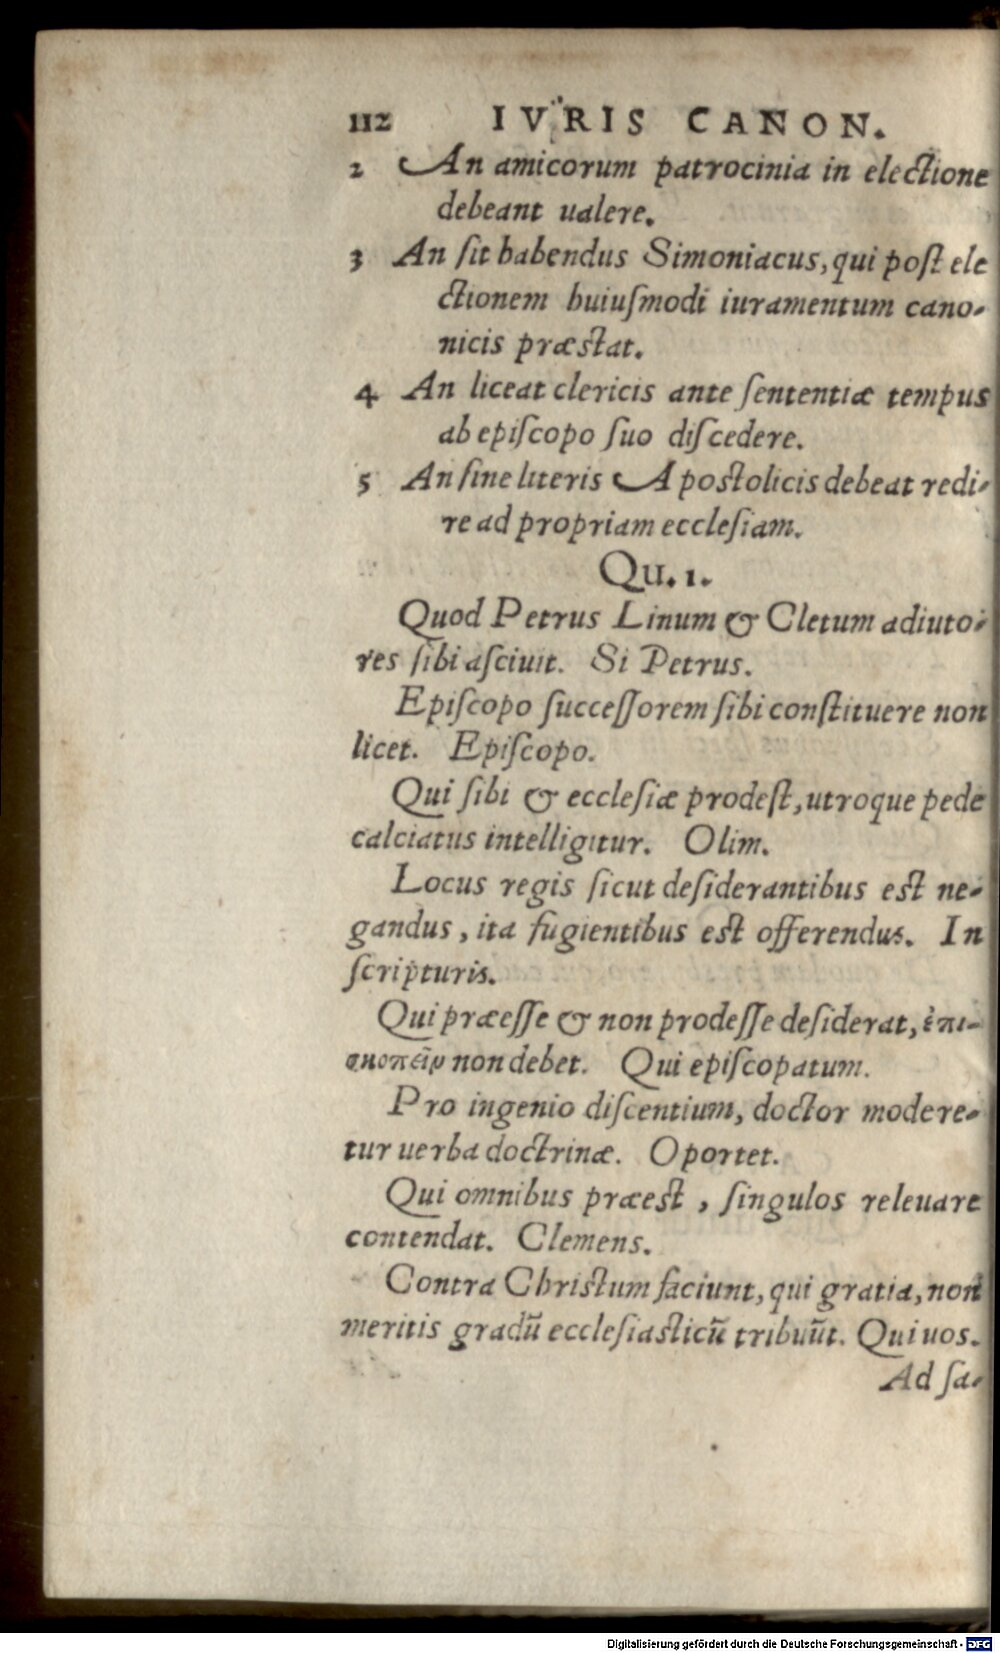 112 IVRIS CANON.
2 An amicorum patrocinia in electione
debeant ualere.
3 An ſit habendus Simoniacus, qui poſt ele
ctionem huiuſmodi iuramentum cano-
nicis præſtat.
4 An liceat clericis ante ſententiæ tempus
ab epiſcopo ſuo diſcedere.
5 An ſine literis Apoſtolicis debeat redi-
re ad propriam eccleſiam.
Qu. 1.
Quod Petrus Linum & Cletum adiuto-
res ſibi aſciuit. Si Petrus.
Epiſcopo ſucceſſorem ſibi conſtituere non
licet. Epiſcopo.
Qui ſibi & eccleſiæ prodeſt, utroque pede
calciatus intelligitur. Olim.
Locus regis ſicut deſiderantibus eſt ne-
gandus, ita fugientibus eſt offerendus. In
ſcripturis.
Qui præeſſe & non prodeſſe deſiderat, ἐπι-
σκοπεῖν non debet. Qui epiſcopatum.
Pro ingenio diſcentium, doctor modere-
tur uerba doctrinæ. Oportet.
Qui omnibus præeſt, ſingulos releuare
contendat. Clemens.
Contra Chriſtum faciunt, qui gratia, non
meritis gradū eccleſiaſticū tribuūt. Qui uos.
Ad ſa-
Digitalisierung gefördert durch die Deutsche Forschungsgemeinschaft - DFG